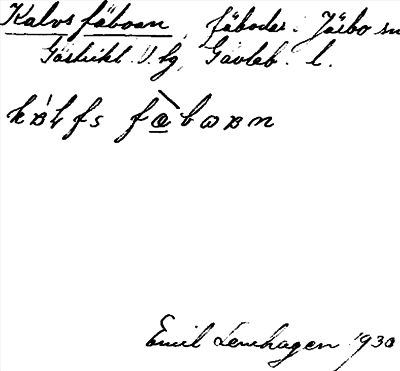 Kalvsfäboan, fäbodar. Järbo sn
Gästrikl. V. hg, Gävleb. l.
Emil Lenhagen 1930